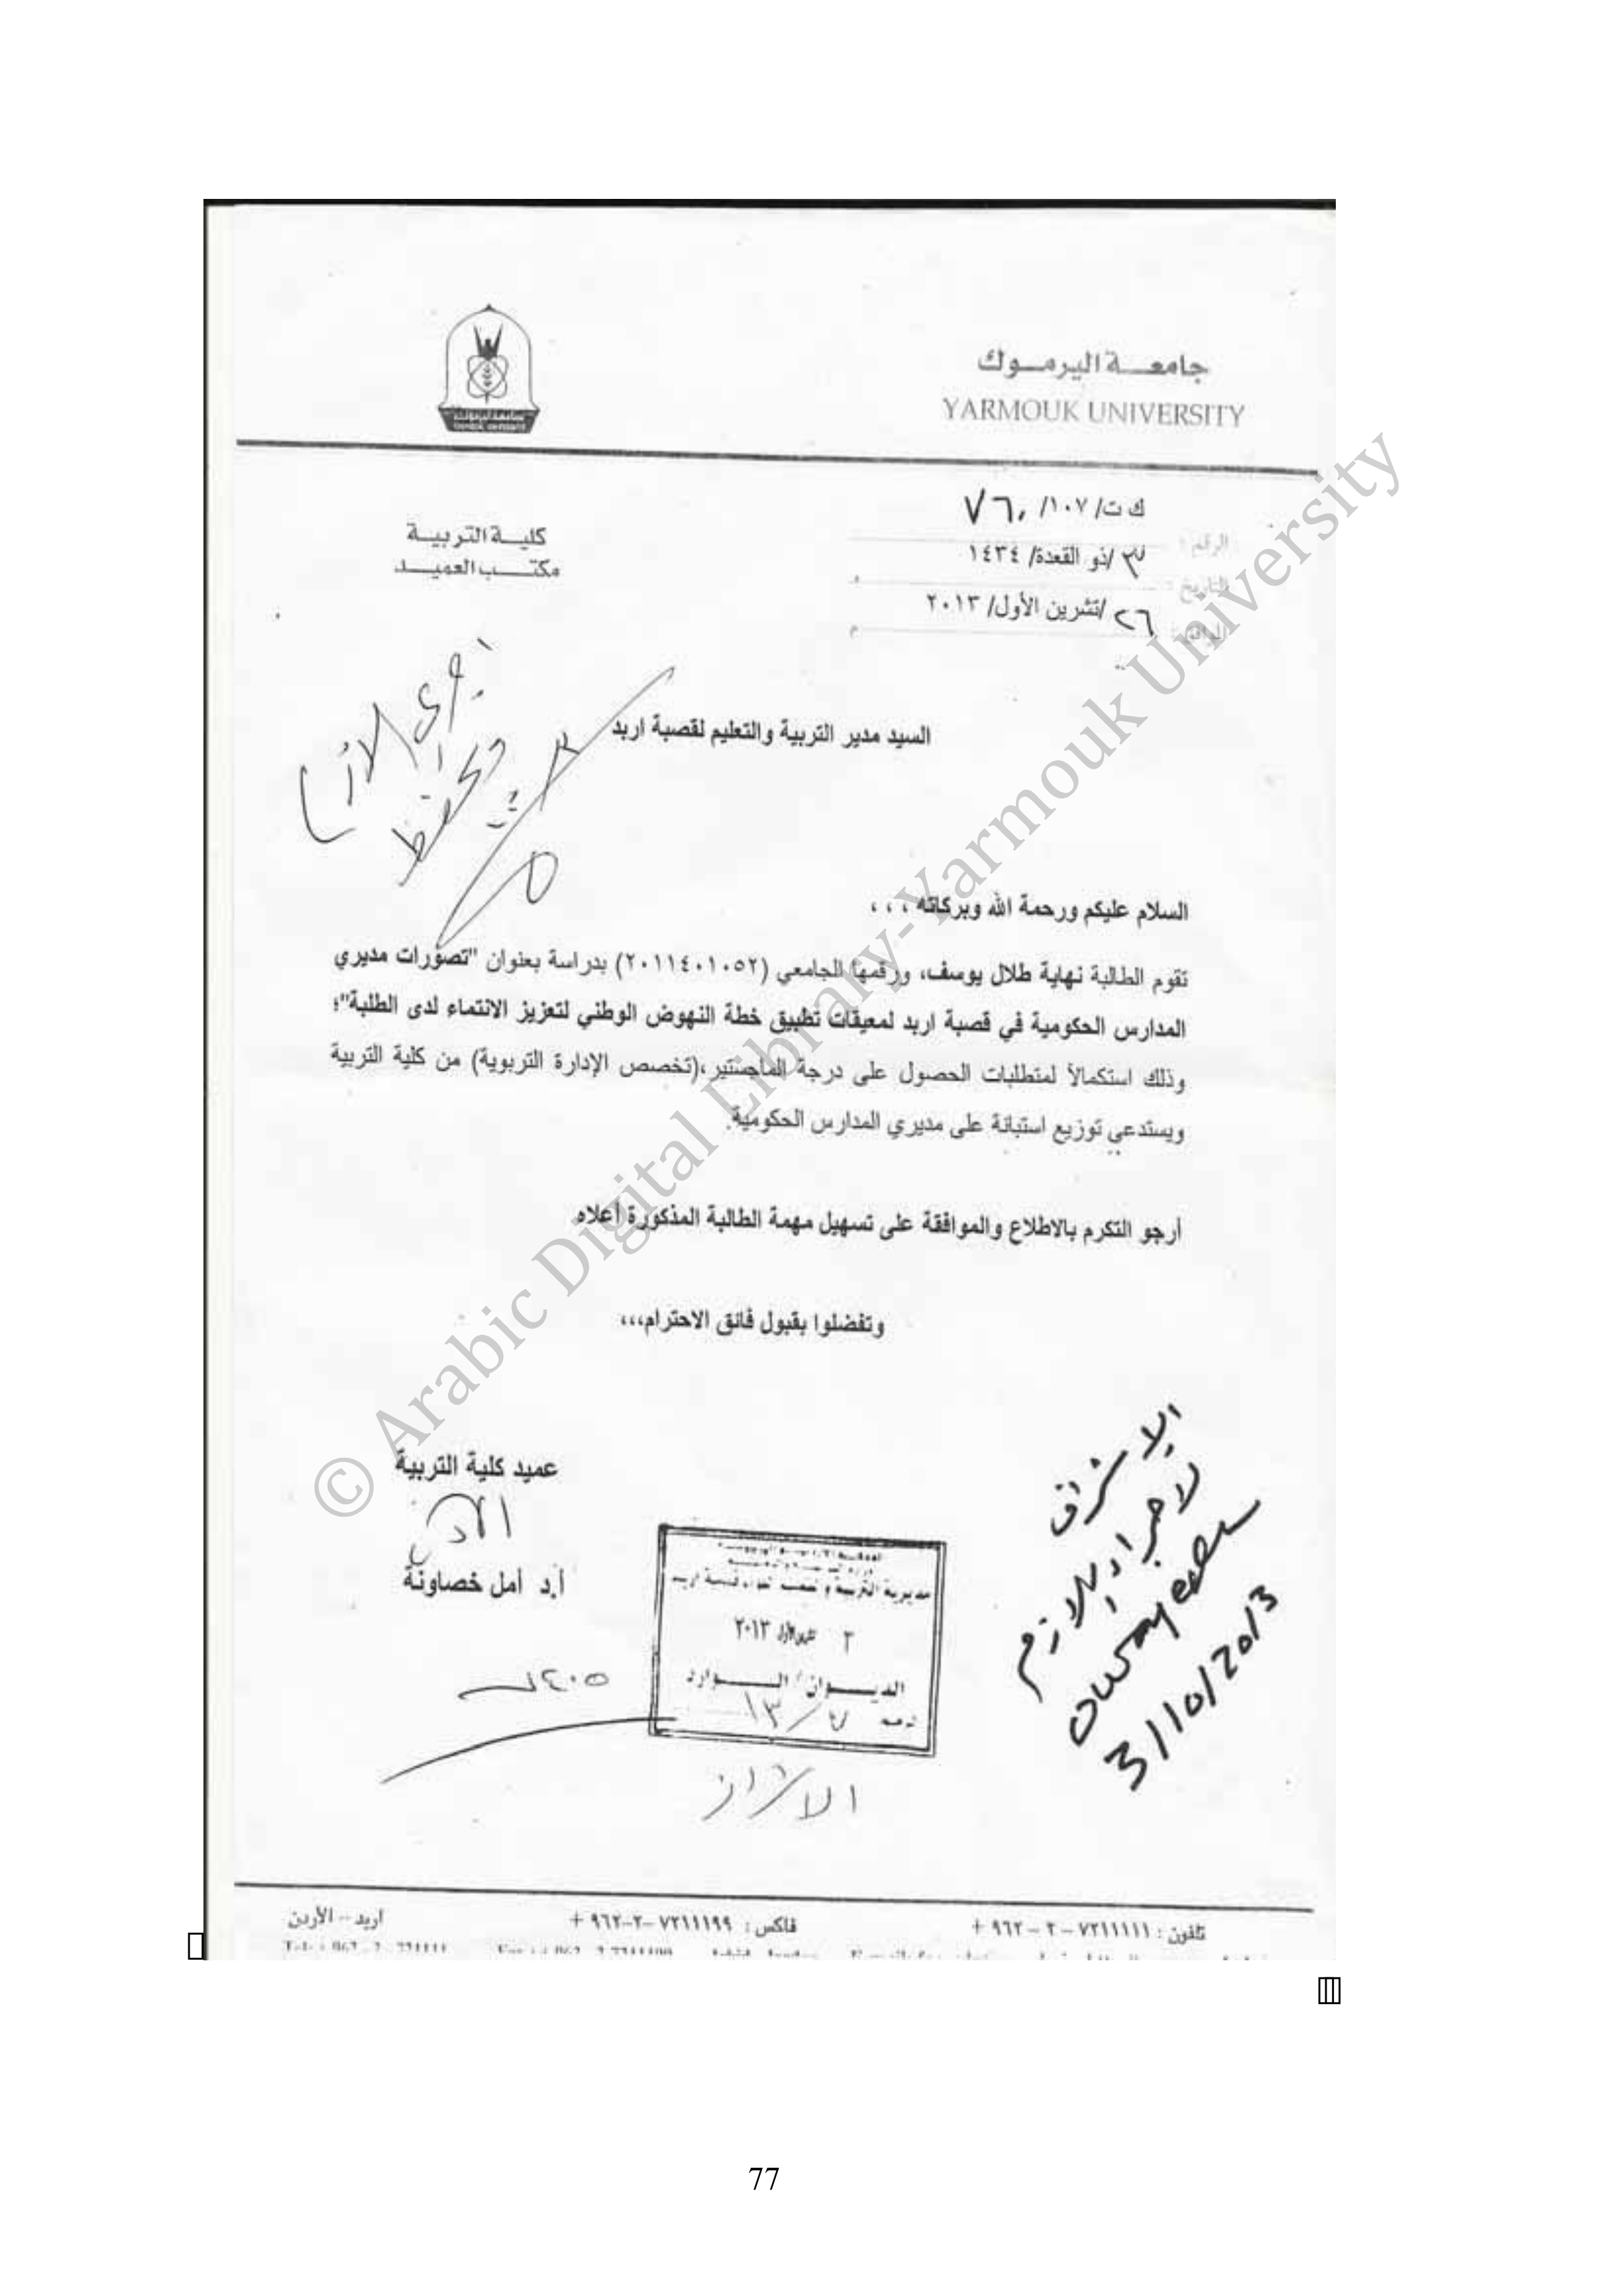 جامعة اليرموك
YARMOUK UNIVERSITY
كلية التربية
مكتب العميد
الرقم : ك ت/ ١٠٧/ ٧٦٠
التاريخ : ٣ /ذو القعدة/ ١٤٣٤
الموافق : ٢٦ /تشرين الأول/ ٢٠١٣ م
السيد مدير التربية والتعليم لقصبة اربد
السلام عليكم ورحمة الله وبركاته ، ، ،
تقوم الطالبة نهاية طلال يوسف، ورقمها الجامعي (٢٠١١٤٠١٠٥٢) بدراسة بعنوان "تصورات مديري
المدارس الحكومية في قصبة اربد لمعيقات تطبيق خطة النهوض الوطني لتعزيز الانتماء لدى الطلبة"؛
وذلك استكمالاً لمتطلبات الحصول على درجة الماجستير،(تخصص الإدارة التربوية) من كلية التربية
ويستدعي توزيع استبانة على مديري المدارس الحكومية.
أرجو التكرم بالاطلاع والموافقة على تسهيل مهمة الطالبة المذكورة أعلاه
وتفضلوا بقبول فائق الاحترام،،،
عميد كلية التربية
أ.د أمل خصاونة
٢ تشرين الأول ٢٠١٣
الديوان / الوارد
١٣/٧
الاشراف
لاجراء اللازم
3/10/2013
تلفون : ٧٢١١١١١ – ٢ – ٩٦٢ +
فاكس : ٧٢١١١٩٩ –٢–٩٦٢ +
اربد – الأردن
© Arabic Digital Library-Yarmouk University
77